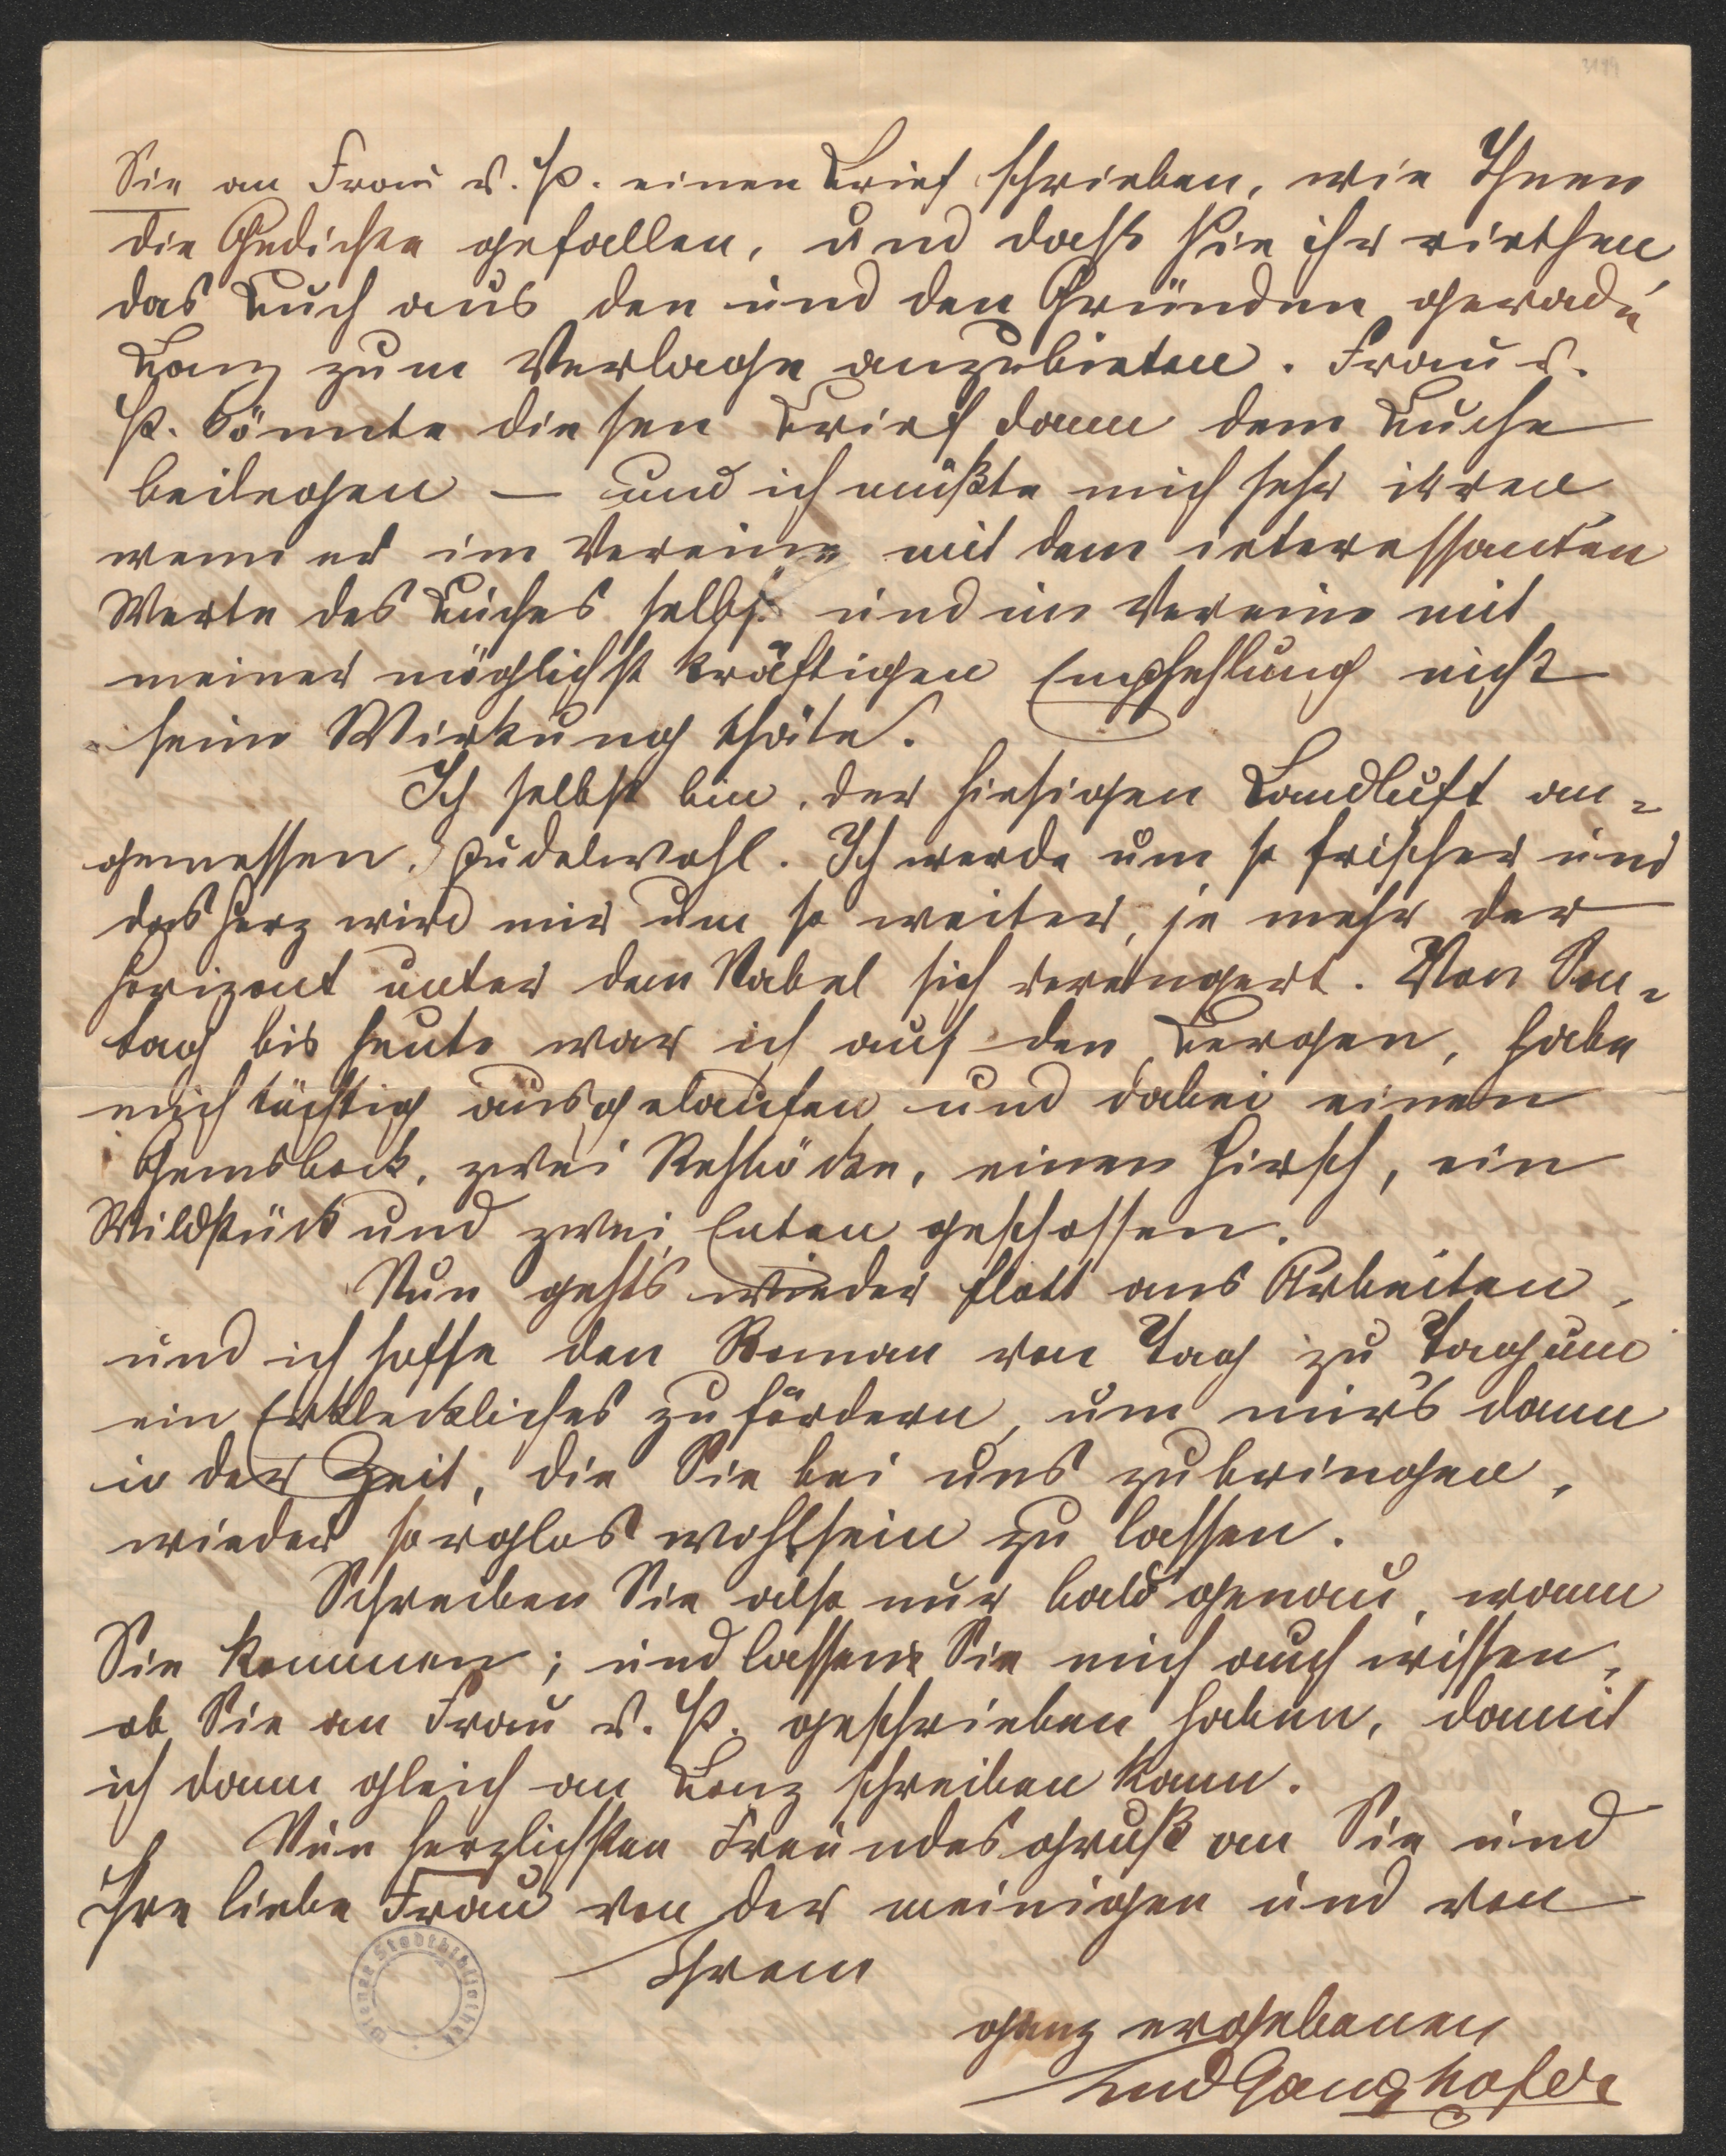 3194
Sie an Frau v. P. einen Brief schrieben, wie Ihnen
die Gedichte gefallen, und daß Sie ihr riethen
das Buch aus den und den Gründen gerade
Bonz zum Verlage anzubieten. Frau v.
P. könnte diesen Brief dann dem Buche
beilegen — und ich müßte mich sehr irren
wenn er im Vereine mit dem interessanten
Werte des Buches selbst und im Vereine mit
meiner möglichst kräftigen Empfehlung nicht
seine Wirkung thäte.
Ich selbst bin, der hiesigen Landluft an-
gemessen, pudelwohl. Ich werde um so frischer und
das Herz wird mir um so weiter, je mehr der
Horizont unter dem Nabel sich verengert. Von Son-
tag bis heute war ich auf den Bergen, habe
mich tüchtig ausgelaufen und dabei einen
Gemsbock, zwei Rehböcke, einen Hirsch, ein
Wildstück und zwei Enten geschossen.
Nun gehts wieder flott ans Arbeiten,
und ich hoffe den Roman von Tag zu Tag um
ein Erkleckliches zu fördern, um mir's dann
in der Zeit, die Sie bei uns zubringen,
wieder sorglos wohlsein zu lassen.
Schreiben Sie also nur bald genau, wann
Sie kommen; und lassen Sie mich auch wissen,
ob Sie an Frau v. P. geschrieben haben, damit
ich dann gleich an Bonz schreiben kann.
Nun herzlichsten Freundesgruß an Sie und
Ihre liebe Frau von der meinigen und von
Ihrem
ganz ergebenen
LudGanghofer
Wiener Stadtbibliothek